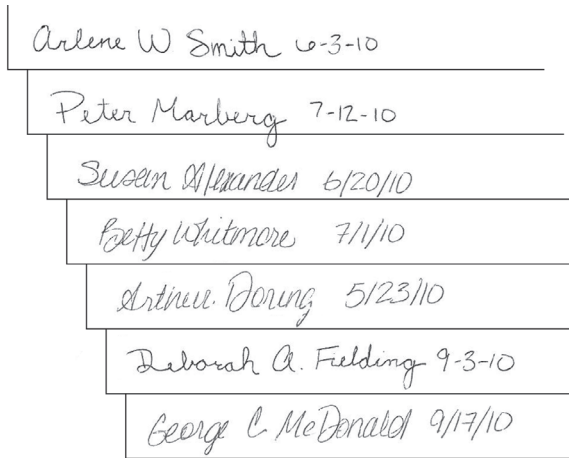 Arlene W Smith 6-3-10
Peter Marberg 7-12-10
Susan Alexander 6/20/10
Betty Whitmore 7/1/10
Arthur Doring 5/23/10
Deborah A. Fielding 9-3-10
George C McDonald 9/17/10